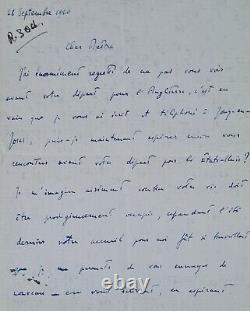 26 Septembre 1960
R. 30 Oct.
Cher Maître
J'ai énormément regretté de ne pas vous voir
avant votre départ pour l'Angleterre, c'est en
vain que je vous ai écrit et téléphoné à
puis-je maintenant espérer vous
rencontrer avant votre départ pour les États-Unis?
Je m'imagine aisément combien votre vie doit
être prodigieusement occupée, cependant l'été
dernier votre accueil pour moi fût si
je me permets de vous ennuyer de
nouveau – en espérant